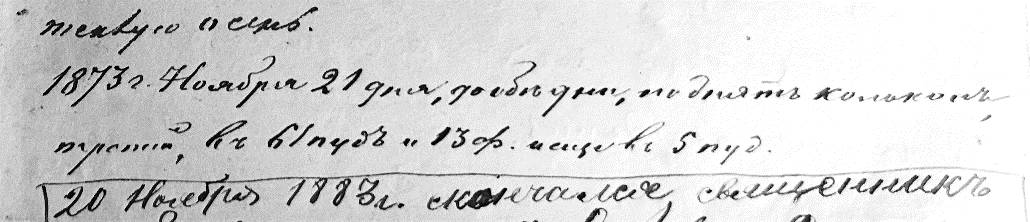 осень.
1873 г. Ноября 21 дня, до обѣдни, поднятъ колоколъ,
третій, въ 61 пудъ и 13 ф. и еще въ 5 пуд.
20 Ноября 1883 г. скончался священникъ